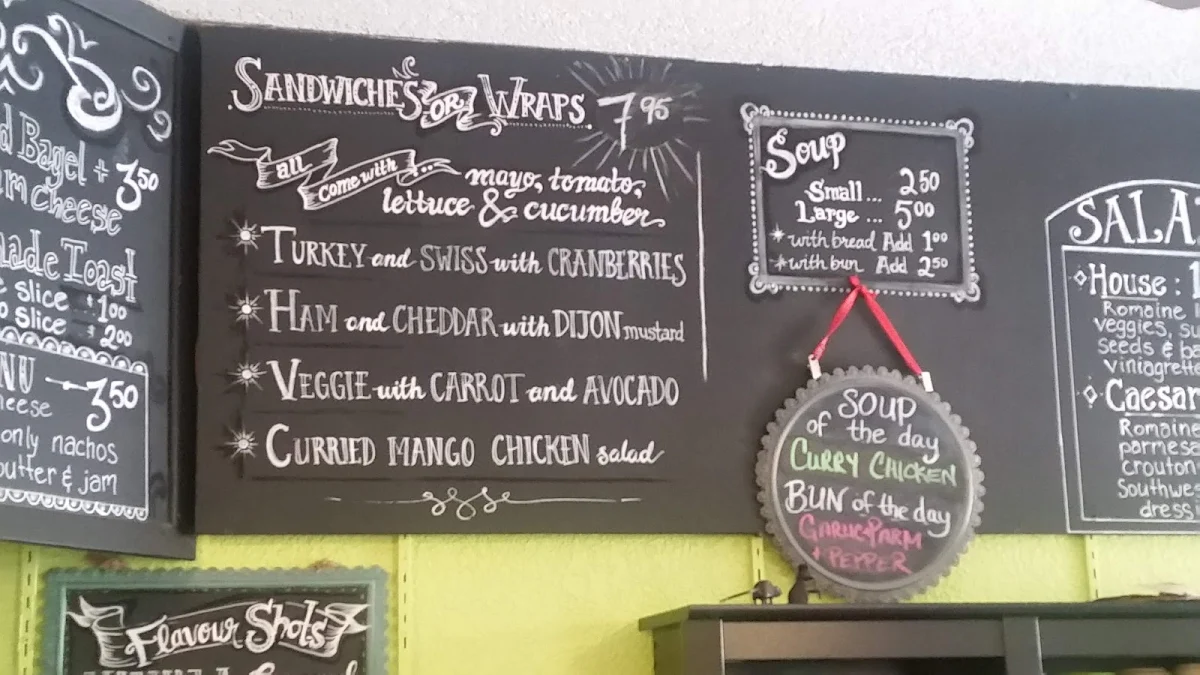 Bagel + 350
Cheese
Toast
slice $100
slice $200
350
only nachos
& jam
SANDWICHES OR WRAPS 795
all come with... mayo, tomato,
lettuce & cucumber
TURKEY and SWISS with CRANBERRIES
HAM and CHEDDAR with DIJON mustard
VEGGIE with CARROT and AVOCADO
CURRIED MANGO CHICKEN salad
Soup
Small... 250
Large... 500
*with bread Add 100
*with bun Add 250
SOUP
of the day
CURRY CHICKEN
BUN of the day
GARLIC PARM
+ PEPPER
House:
Romaine
veggies,
seeds &
Caesar
Romaine
Flavour Shots